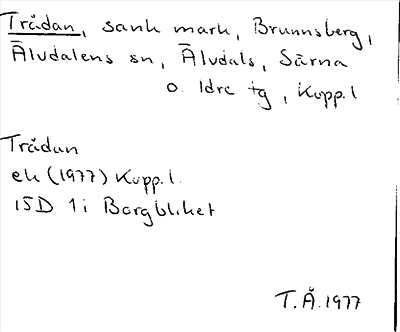 Trådan, sank mark, Brunnsberg,
Älvdalens sn, Älvdals, Särna
o. Idre tg, Kopp. l
Trådan
ek (1977) Kopp. l.
15D 1i Borgbliket
T. Å. 1977